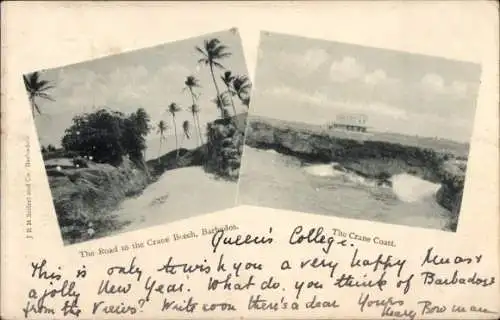 J R H Seifert and Co. Barbados.
The Road to the Crane Beach, Barbados.
The Crane Coast.
Queen's College.
This is only to wish you a very happy Xmas &
a jolly New Year. What do you think of Barbadose
from the Views? Write soon there's a dear Yours
Bowman